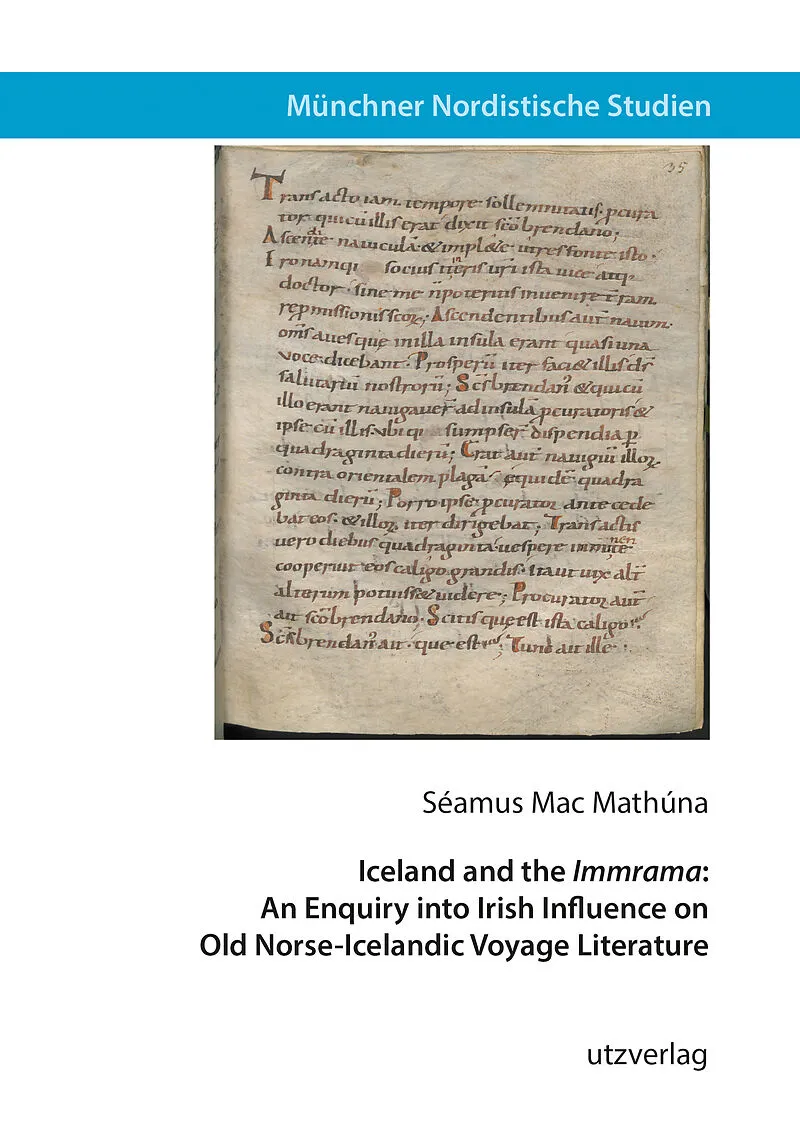 Münchner Nordistische Studien
35
Transacto iam tempore sollemnitatis. pcura
tor qui cu illis erat dixit sco brendano;
Ascendite navicula & imple utres fonte isto.
socius itineris uri ista uice atq;
doctor. sine me n poteritis inuenire tram
repmissionis scoꝝ; Ascendentibus aut nauim.
oms aues que in illa insula erant quasi una
voce dicebant. Prosperu iter faci& illis ds
salutariu nostroru; Scs brendan & qui cu
illo erant nauigauer ad insula pcuratoris &
ipse cu illis. ubi sumpser dispendia p
quadraginta dieru; Erat aut nauigiu illoꝝ
contra orientalem plaga equide quadra
ginta dieru; Porro ipse pcurator ante cede
bat eos. & illoꝝ iter dirigebat; Transactis
uero diebus quadraginta uespere
cooperuit eos caligo grandis. ita ut uix alt
alterum potuiss& uidere; Procurator aut
ait sco brendano. Scitis que est ista caligo
Scs brendan ait. que est; Tunc ait ille.
Séamus Mac Mathúna
Iceland and the Immrama:
An Enquiry into Irish Influence on
Old Norse-Icelandic Voyage Literature
utzverlag